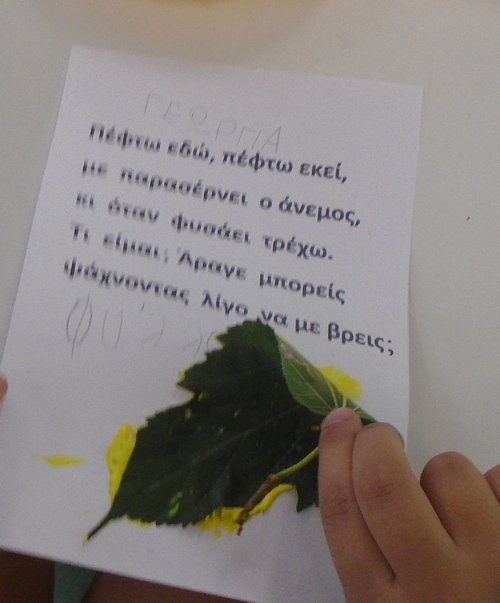 ΓΕΩΡΜΑ
Πέφτω εδώ, πέφτω εκεί,
με παρασέρνει ο άνεμος,
κι όταν φυσάει τρέχω.
Τι είμαι; Άραγε μπορείς
ψάχνοντας λίγο να με βρεις;